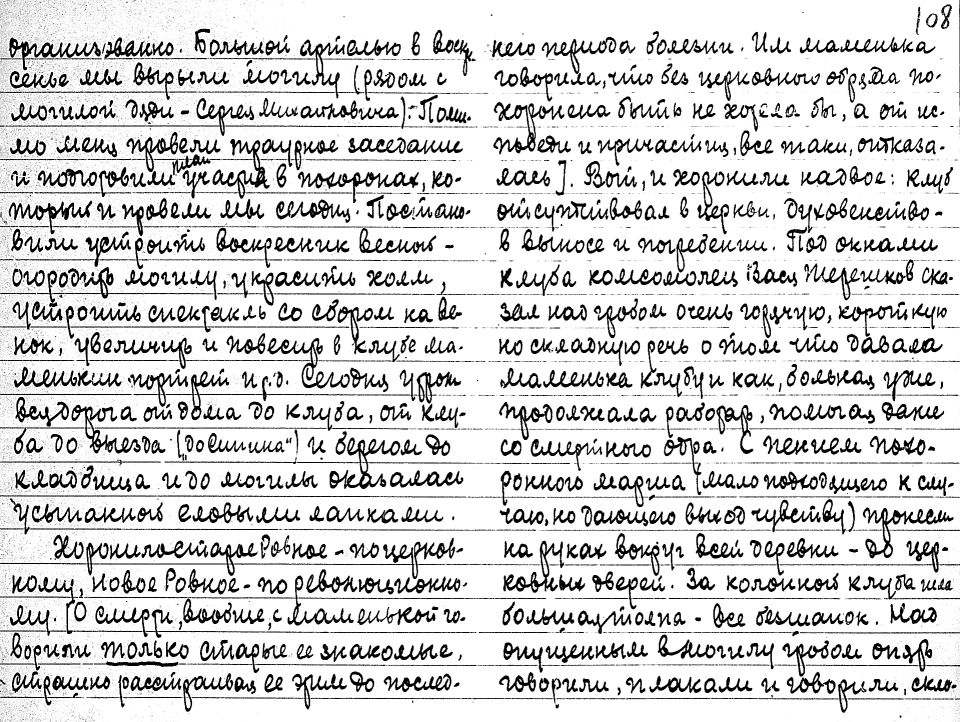 108
организованно. Большой артелью в воскре-
сенье мы вырыли могилу (рядом с
могилой дяди - Сергея Михайловича). Поми-
мо меня провели траурное заседание
и подготовили план участия в похоронах, ко-
торый и провели мы сегодня. Постано-
вили устроить воскресник весной -
огородить могилу, украсить холм,
устроить спектакль со сбором на ве-
нок, увеличить и повесить в клубе ма-
менькин портрет и т.д. Сегодня утром
вся дорога от дома до клуба, от клу-
ба до выезда ("до Силина") и берегом до
кладбища и до могилы оказалась
усыпанной еловыми лапками.
Хоронило старое Ровное - по церков-
ному, новое Ровное - по революционно-
му. [О смерти, вообще, с маменькой го-
ворили только старые ее знакомые,
страшно расстраивая ее этим до послед-
него периода болезни. Им маменька
говорила, что без церковного обряда по-
хоронена быть не хотела бы, а от ис-
поведи и причастия, все таки, отказа-
лась]. Вот, и хоронили надвое: клуб
отсутствовал в церкви, духовенство -
в выносе и погребении. Под окнами
клуба комсомолец Вася Терешков ска-
зал над гробом очень горячую, короткую
но складную речь о том что давала
маменька клубу и как, больная уже,
продолжала работать, помогая даже
со смертного одра. С пением похо-
ронного марша (мало подходящего к слу-
чаю, но дающего выход чувству) пронесли
на руках вокруг всей деревни - до цер-
ковных дверей. За колонной клуба шла
большая толпа - все без шапок. Над
опущенным в могилу гробом опять
говорили, плакали и говорили, скло-